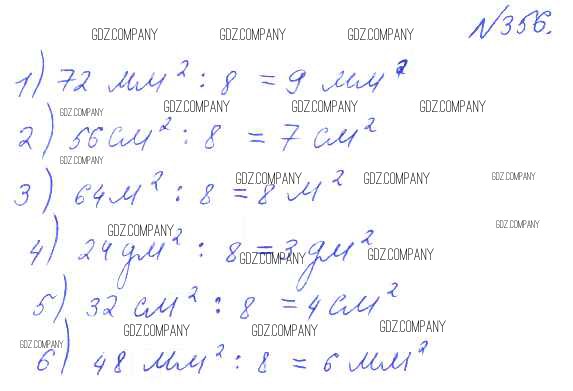 №356.
GDZ.COMPANY GDZ.COMPANY GDZ.COMPANY
1) 72 мм² : 8 = 9 мм²
GDZ.COMPANY GDZ.COMPANY GDZ.COMPANY GDZ.COMPANY
2) 56 см² : 8 = 7 см²
GDZ.COMPANY
GDZ.COMPANY GDZ.COMPANY GDZ.COMPANY
3) 64 м² : 8 = 8 м²
GDZ.COMPANY GDZ.COMPANY
4) 24 дм² : 8 = 3 дм²
GDZ.COMPANY GDZ.COMPANY
5) 32 см² : 8 = 4 см²
GDZ.COMPANY GDZ.COMPANY GDZ.COMPANY
GDZ.COMPANY
6) 48 мм² : 8 = 6 мм²